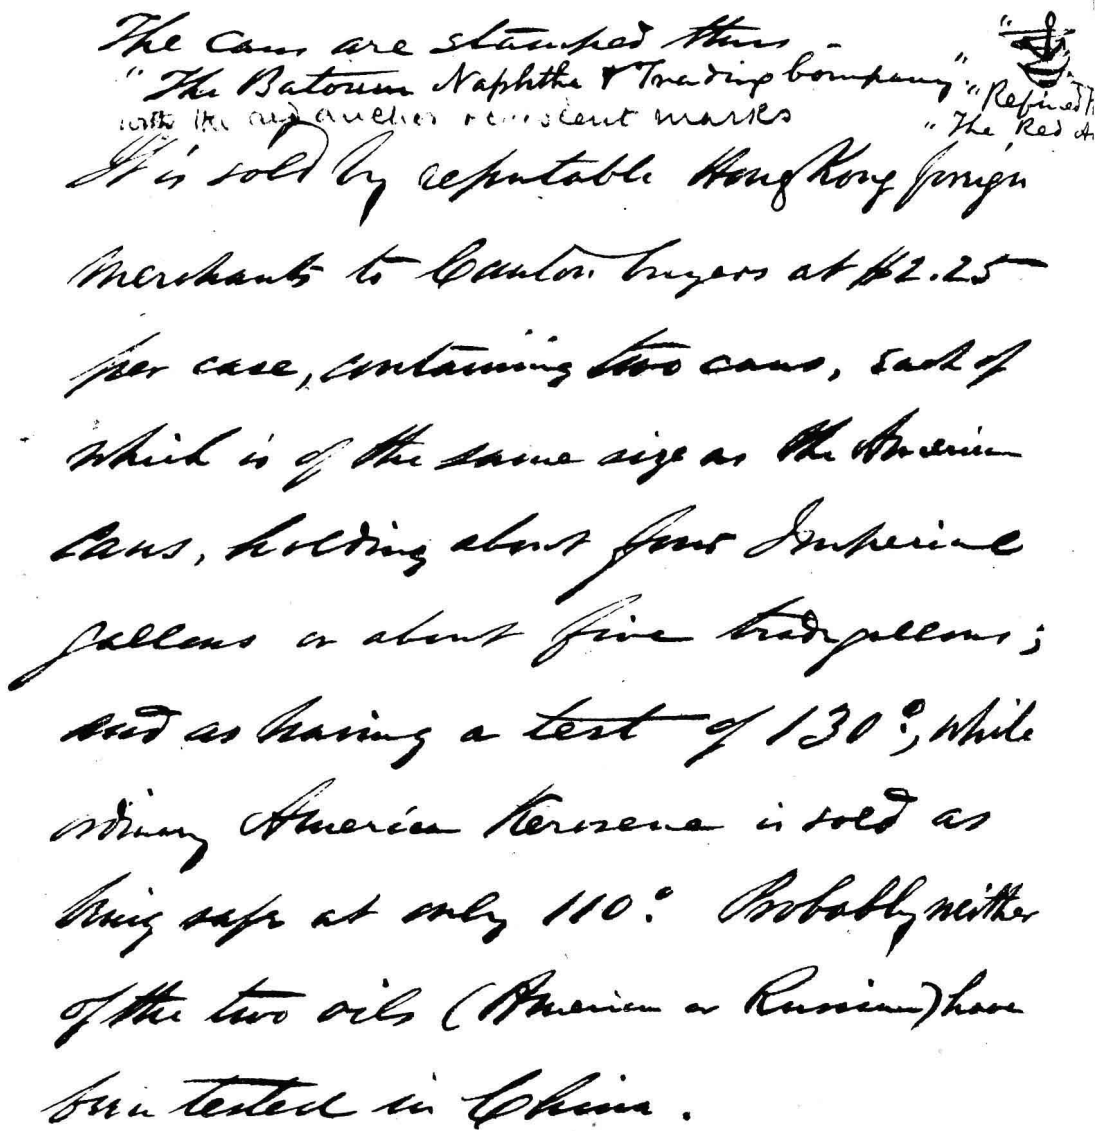 The cans are stamped thus -
"The Batoum Naphtha & Trading Company".
"Refined
with the red anchor marks
"The Red
It is sold by reputable Hong Kong foreign
merchants to Canton buyers at $2.25
per case, containing two cans, each of
which is of the same size as the American
cans, holding about four Imperial
gallons or about five trade gallons;
and as having a test of 130°, while
ordinary American Kerosene is sold as
being safe at only 110°. Probably neither
of the two oils (American or Russian) have
been tested in China.